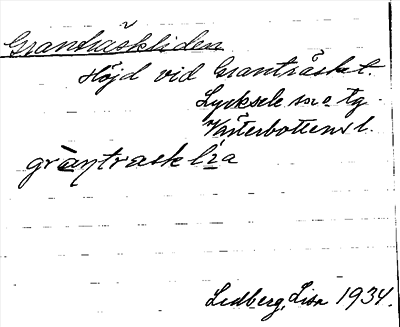 Granträskliden
Höjd vid Granträsket.
Lycksele sn o tg.
Västerbottens l.
gràn̩traskl̀ıa
Lidberg, Lisa 1934.